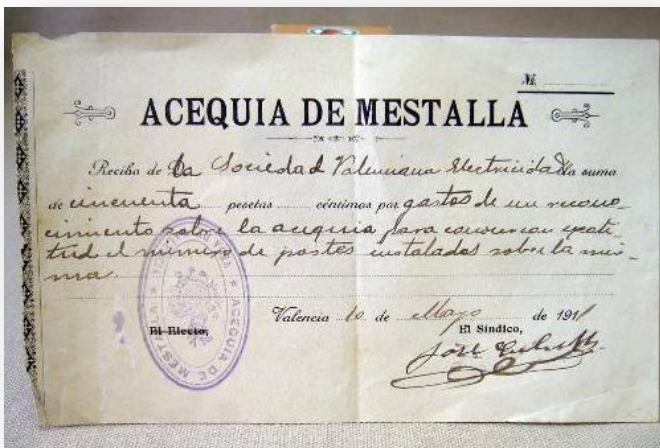 №
ACEQUIA DE MESTALLA
Recibo de La Sociedad Valenciana Electricidad la suma
de cincuenta pesetas céntimos por gastos de un recono-
cimiento sobre la acequia para con
titud el número de postes instalados sobre la mis-
ma.
Valencia 10 de Mayo de 1911
El Electo,
El Síndico,
José
ACEQUIA DE MESTALLA